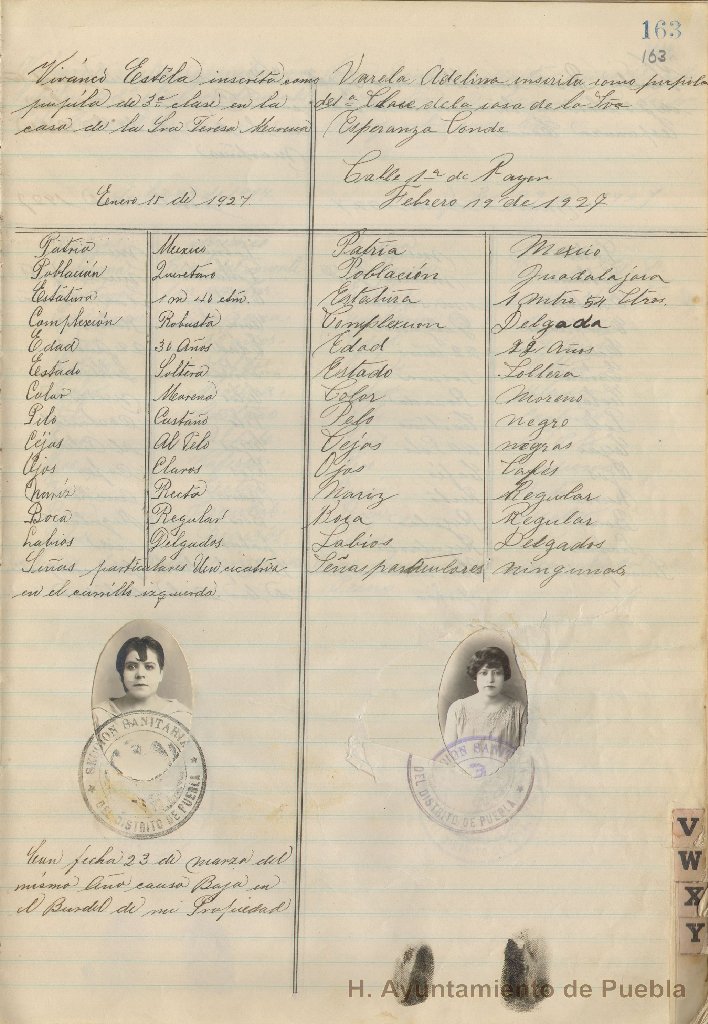 163
163
Vivanco Estela inscrita como
pupila de 3ª clase en la
casa de la Sra Teresa Moreno
Enero 15 de 1927.
Patria Mexico
Población Queretaro
Estatura 1 m 40 ctm.
Complexión Robusta
Edad 30 Años
Estado Soltera
Color Morena
Pelo Castaño
Cejas Al Pelo
Ojos Claros
Nariz Recta
Boca Regular
Labios Delgados
Señas particulares Una cicatriz
en el carrillo izquierdo
SECCION SANITARIA
DEL DISTRITO DE PUEBLA
Con fecha 23 de marzo del
mismo Año causo Baja en
el Burdel de mi Propiedad
Varela Adelina inscrita como pupila
de 1ª Clase de la casa de la Sra
Esperanza Conde
Calle 1ª de Rayon
Febrero 19 de 1927
Patria Mexico
Población Guadalajara
Estatura 1 Mtro 54 Ctros.
Complexion Delgada
Edad 22 Años
Estado Soltera
Color Moreno
Pelo negro
Cejas negras
Ojos Cafés
Nariz Regular
Boca Regular
Labios Delgados
Señas particulares ningunas
SANITA
DEL DISTRITO DE PUEBLA
V
W
X
Y
H. Ayuntamiento de Puebla